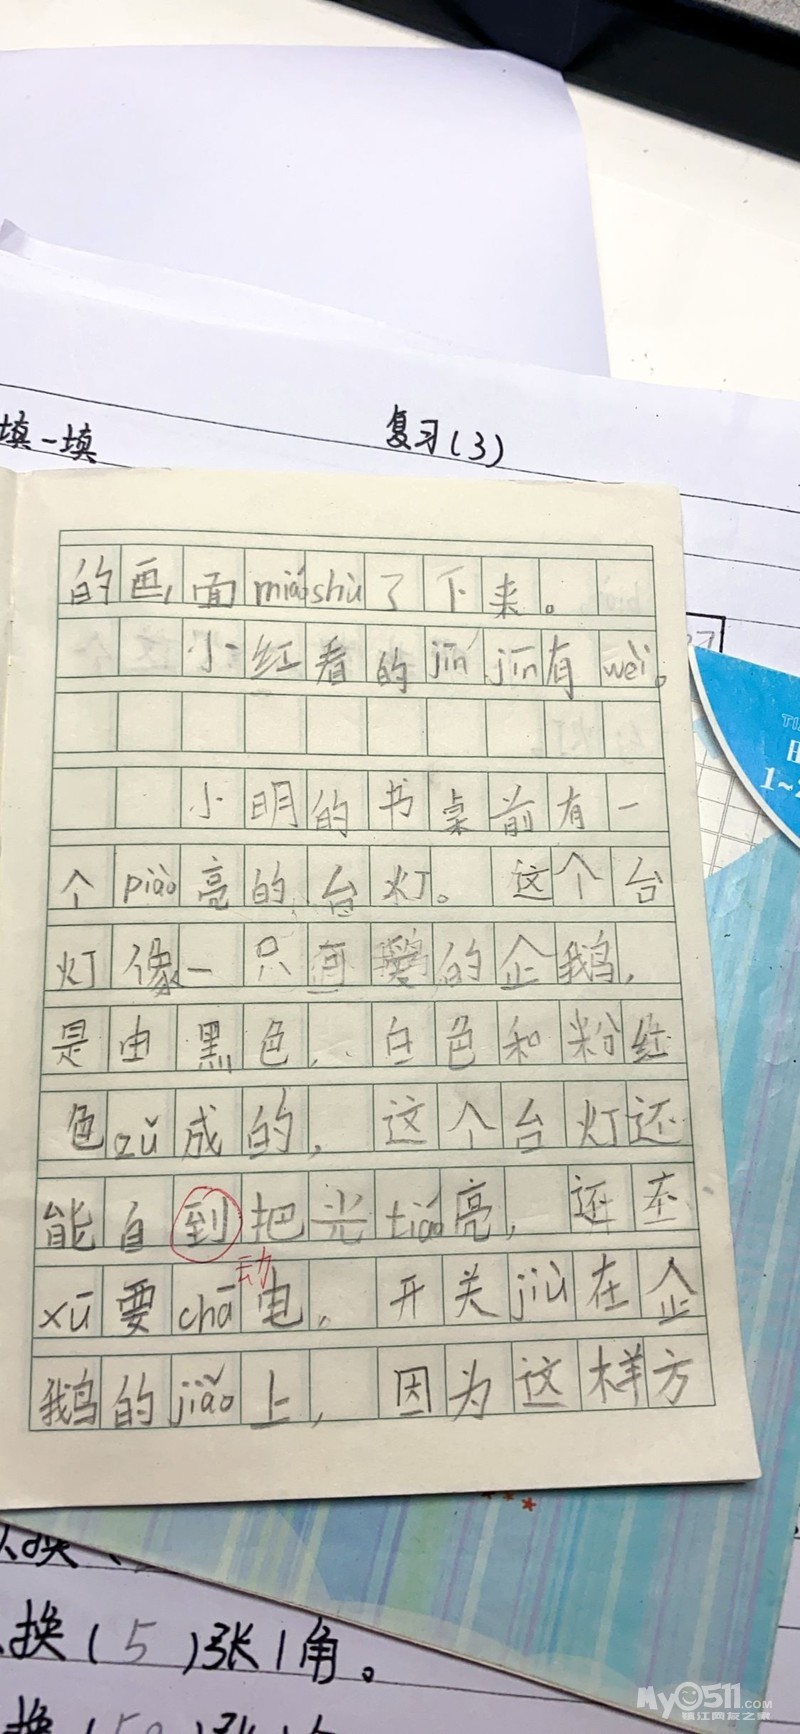 填一填 复习(3)
的画面miáoshù了下来。
小红看的jīn jīn有wèi。
小明的书桌前有一
个piào亮的台灯。这个台
灯像一只可爱的企鹅,
是由黑色、白色和粉红
色zǔ成的,这个台灯还
能自到把光tiáo亮,还不
动
xū要chā电,开关jiù在企
鹅的jiǎo上,因为这样方
换(5)张1角。
My0511.COM
镇江网友之家